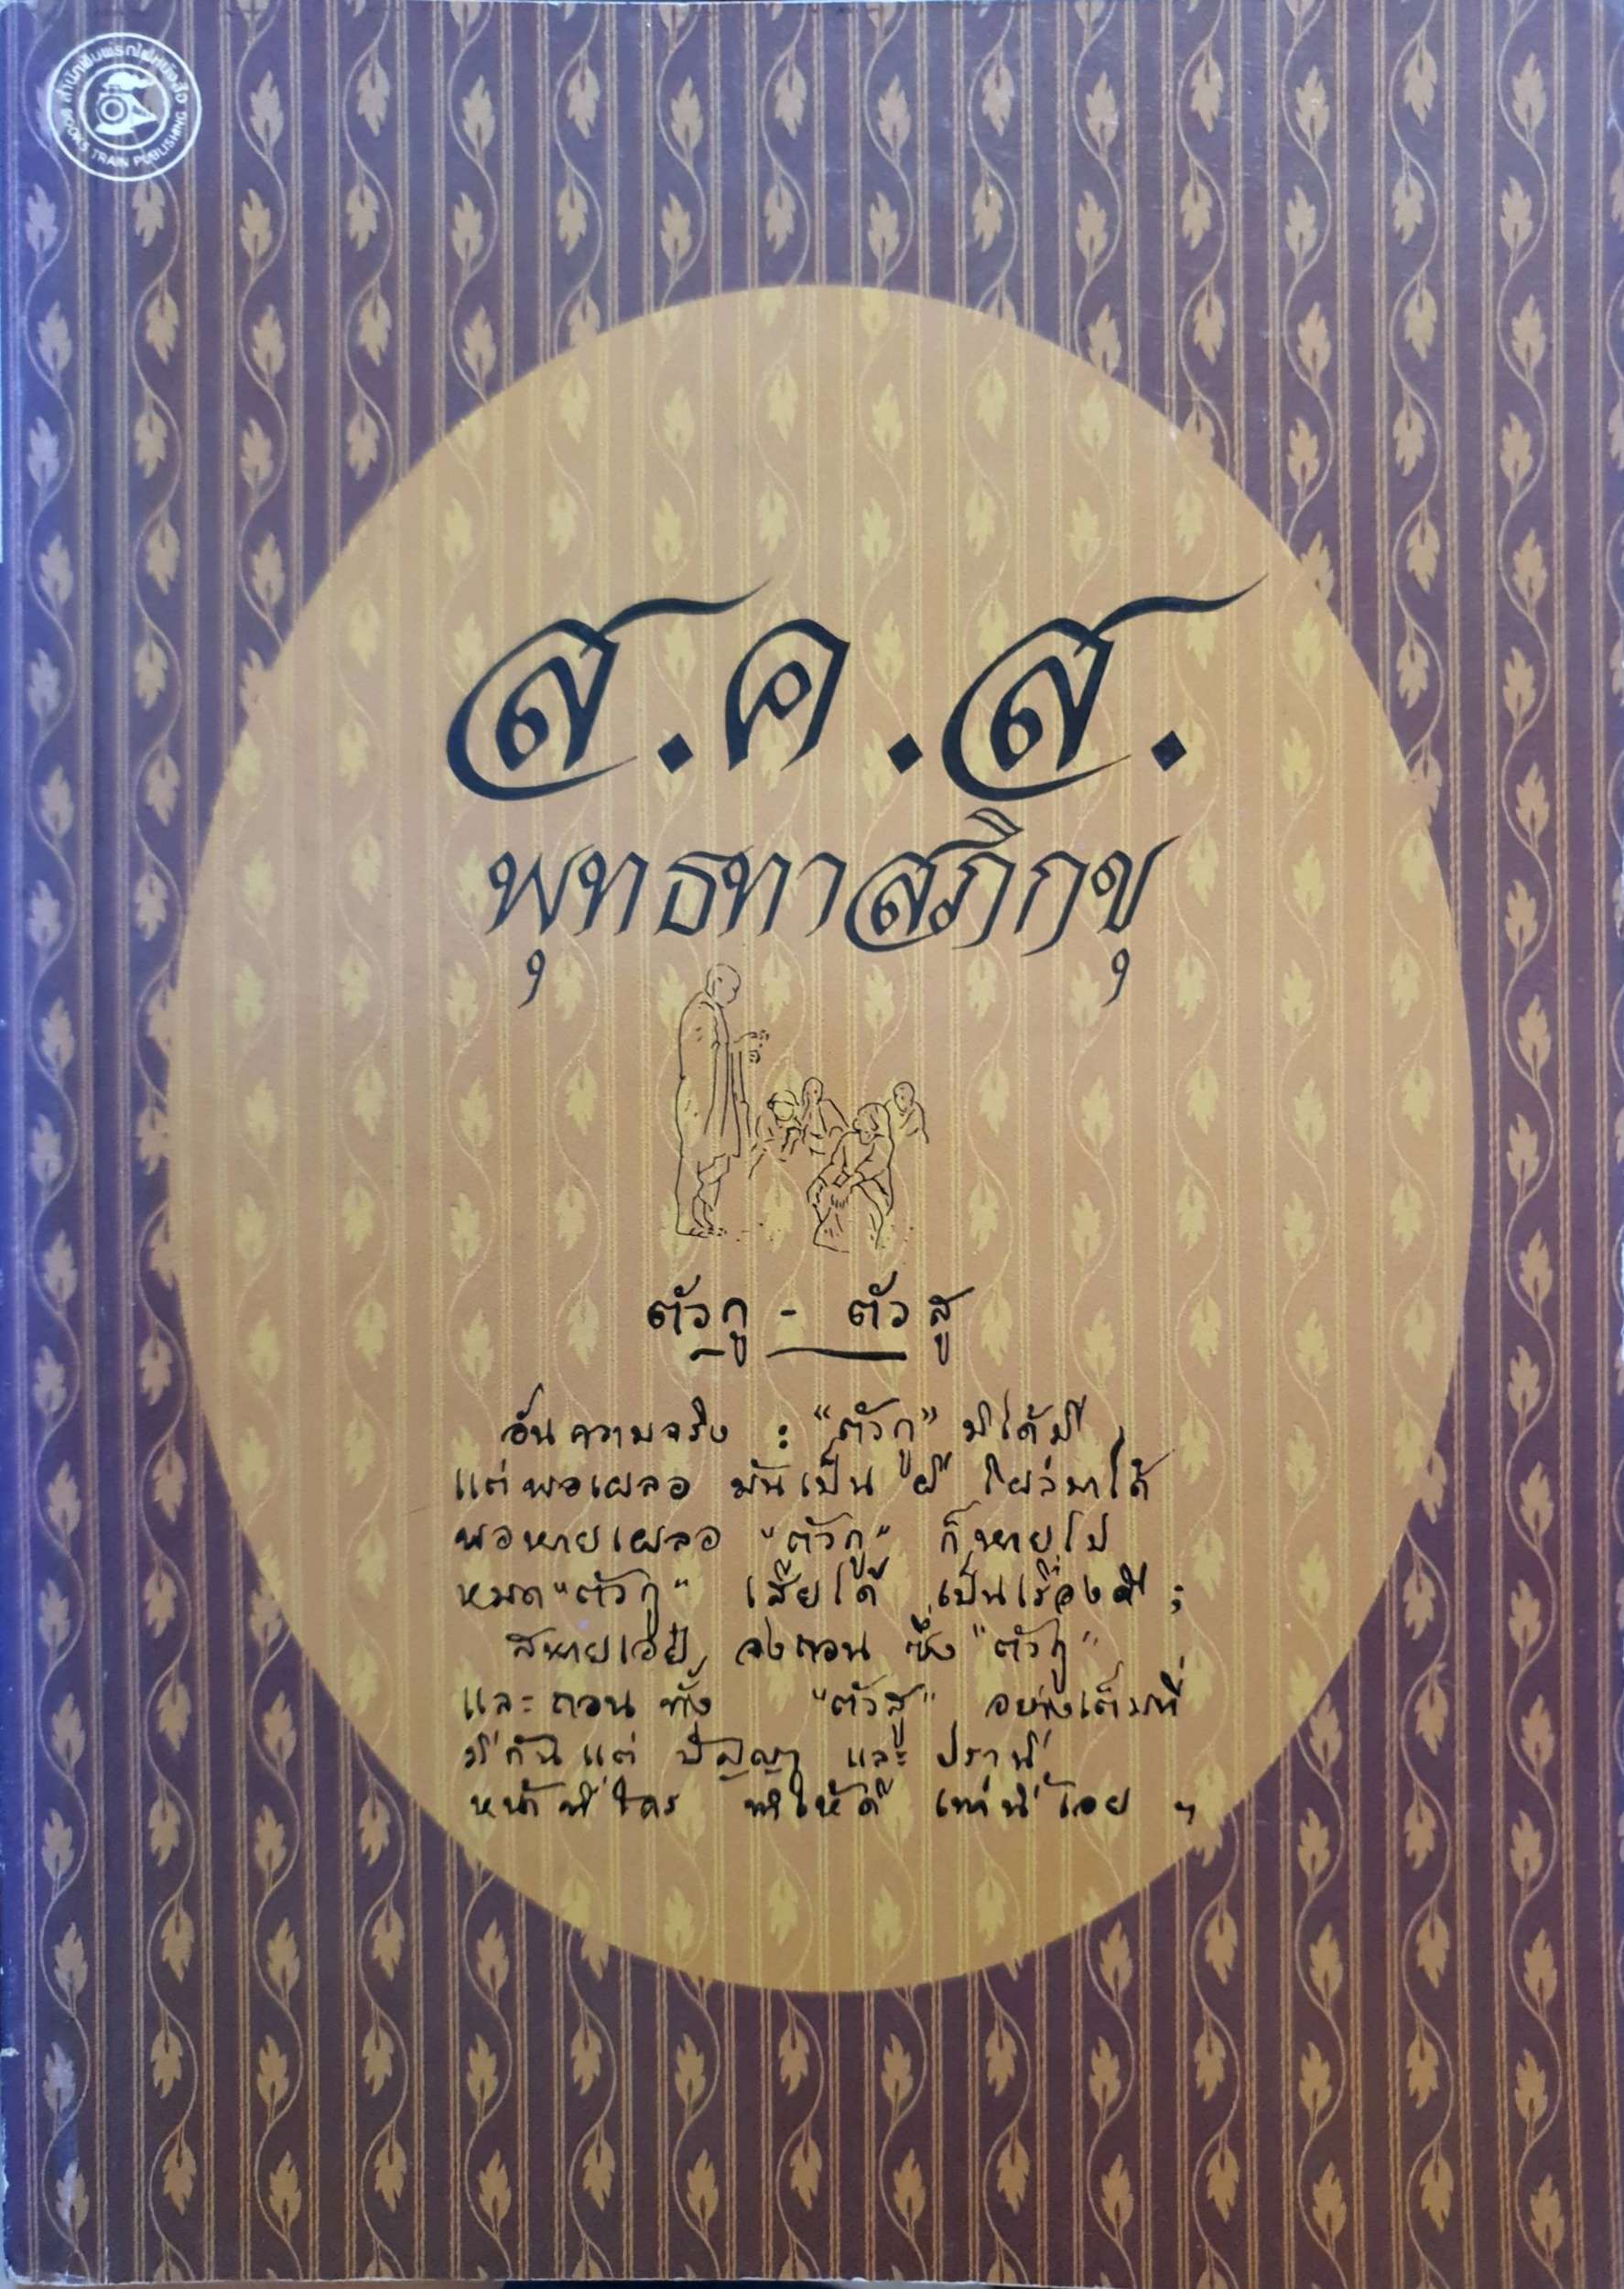 สำนักพิมพ์รถไฟหนังสือ
BOOKS TRAIN PUBLISHING
ส.ค.ส.
พุทธทาสภิกขุ
ตัวกู - ตัวสู
อันความจริง : "ตัวกู" มิได้มี
แต่พอเผลอ มันเป็น ผี โผล่มาได้
พอหายเผลอ "ตัวกู" ก็หายไป
หมด "ตัวกู" เสียได้ เป็นเรื่องดี ;
สหายเอ๋ย จงถอน ซึ่ง "ตัวกู"
และถอน ทั้ง "ตัวสู" อย่างเต็มที่
มีกันแต่ ปัญญา และ ปรานี
หน้าที่ใคร ทำให้ดี เท่านี้เอย ฯ